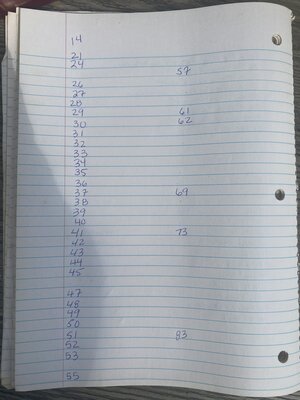 14
21
24
57
26
27
28
29 61
30 62
31
32
33
34
35
36
37 69
38
39
40
41 73
42
43
44
45
47
48
49
50
51 83
52
53
55